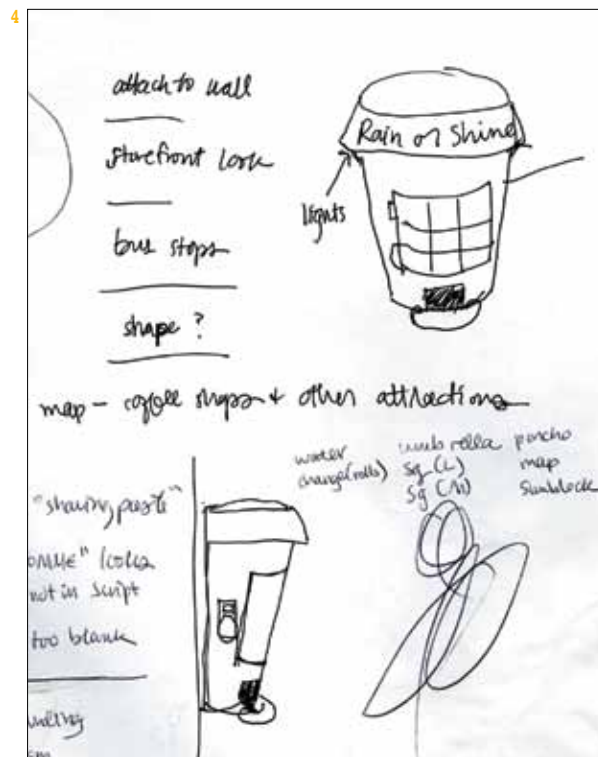 4
attach to wall
storefront look
bus stops
shape ?
Rain or Shine
lights
map - coffee shops + other attractions
water
change (rolls)
umbrella
sg (L)
sg (M)
poncho
map
sunblock
"shaving paste"
looks
not in script
too blank